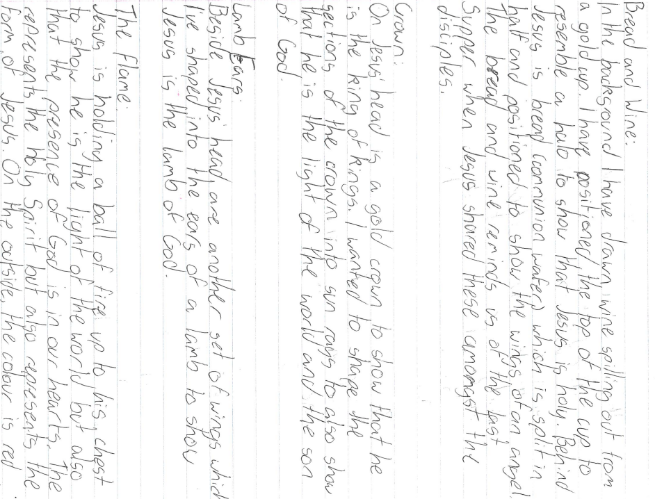 Bread and Wine:
In the background I have drawn wine spilling out from
a gold cup. I have positioned the top of the cup to
resemble a halo to show that Jesus is holy. Behind
Jesus is bread (communion water) which is split in
half and positioned to show the wings of an angel.
The bread and wine reminds us of the last
Supper when Jesus shared these amongst the
disliples.
Crown:
On Jesus' head is a gold crown to show that he
is the king of kings. I wanted to shape the
sections of the crown into sun rays to also show
that he is the light of the world and the son
of God.
Lamb Ears:
Beside Jesus' head are another set of wings which
I've shaped into the ears of a lamb to show
Jesus is the lamb of God.
The flame:
Jesus is holding a ball of fire up to his chest
to show he is the light of the world but also
that the presence of God is in our hearts. The
represents the Holy Spirit but also represents the
form of Jesus. On the outside, the colour is red